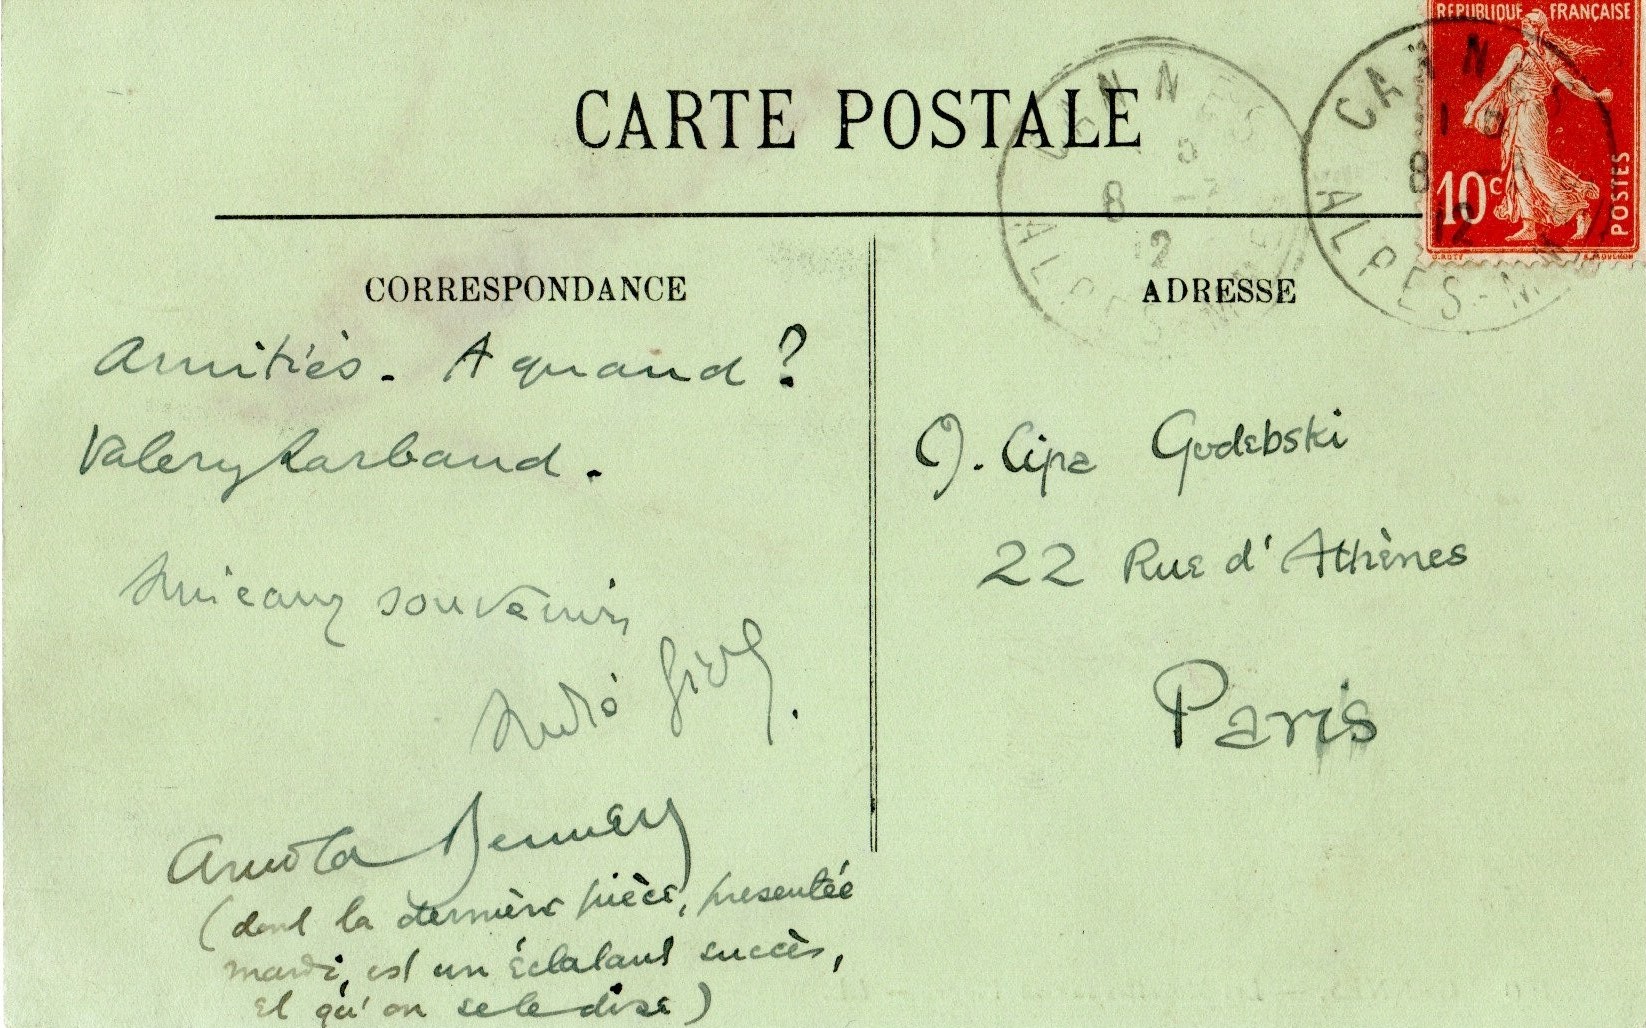 CARTE POSTALE
REPUBLIQUE FRANÇAISE
10c
POSTES
CANNES
8
12
ALPES-MMES
CANN
8
12
ALPES-M
CORRESPONDANCE
Amitiés. A quand ?
Valery Larbaud.
Amicaux souvenirs
André Gide.
Arnold Bennett
(dont la dernière pièce, presentée
mardi, est un éclatant succès,
et qu'on se le dise)
ADRESSE
J. Cipa Godebski
22 Rue d'Athènes
Paris